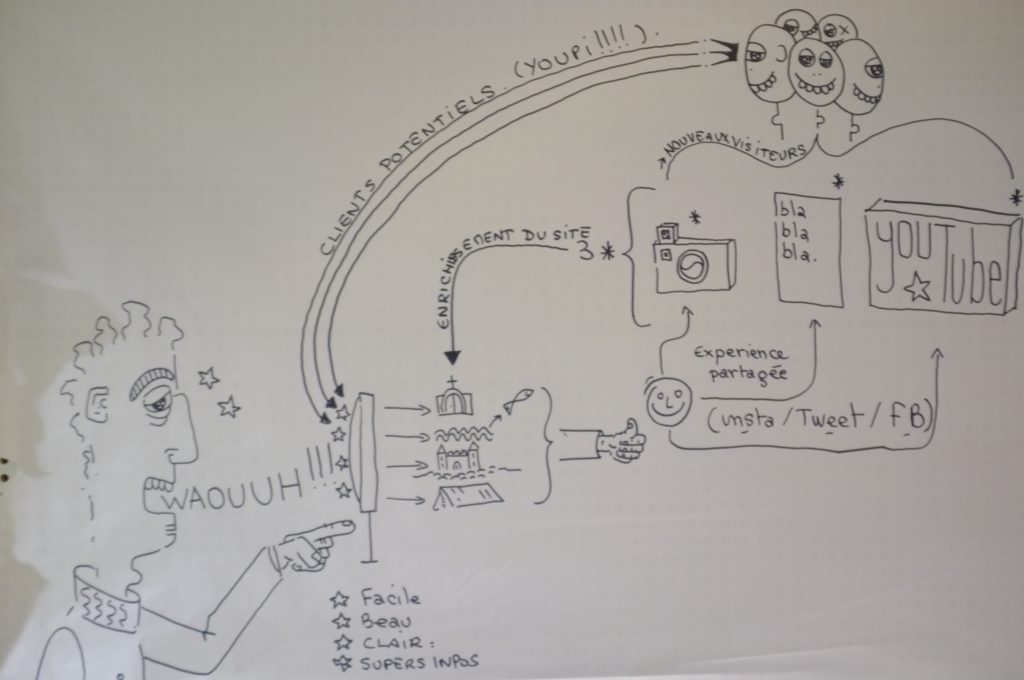 CLIENTS POTENTIELS. (YOUPI!!!!).
→ NOUVEAUX VISITEURS
ENRICHISSEMENT DU SITE
3 *
*
*
*
bla
bla
bla.
YOUTUBE
Experience
partagée
(insta / Tweet / FB)
WAOUUH!!!
Facile
Beau
CLAIR :
SUPERS INFOS